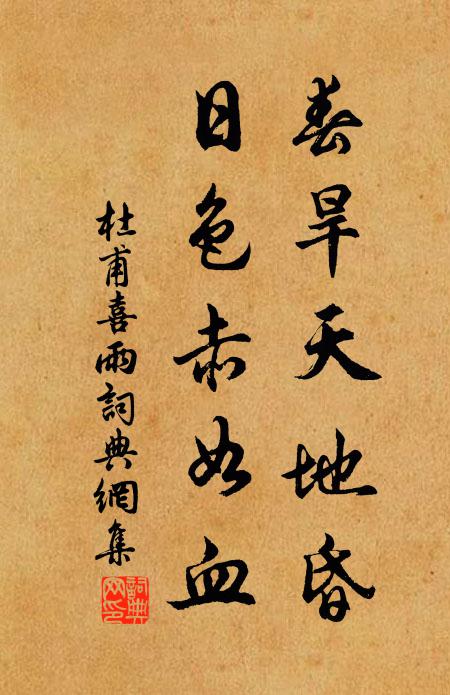 春旱天地昏
日色赤如血
杜甫喜雨詞典網集
詞典網印